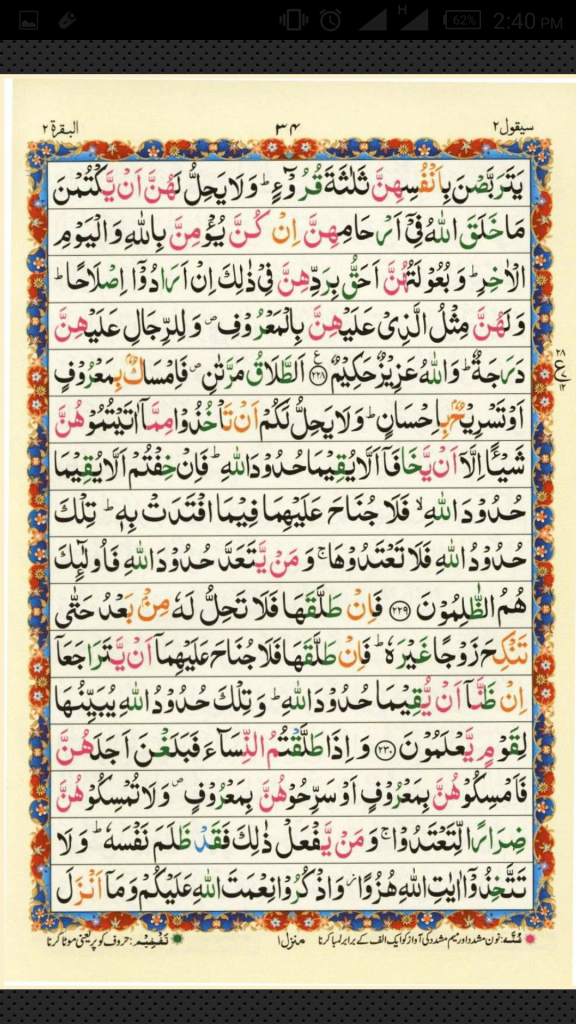 H 62% 2:40 PM
سيقول ٢ ٣٤ البقرة ٢
يَتَرَبَّصْنَ بِاَنْفُسِهِنَّ ثَلٰثَةَ قُرُوْٓءٍ ؕ وَلَا يَحِلُّ لَهُنَّ اَنْ يَّكْتُمْنَ
مَا خَلَقَ اللّٰهُ فِيْٓ اَرْحَامِهِنَّ اِنْ كُنَّ يُؤْمِنَّ بِاللّٰهِ وَالْيَوْمِ
الْاٰخِرِ ؕ وَبُعُوْلَتُهُنَّ اَحَقُّ بِرَدِّهِنَّ فِيْ ذٰلِكَ اِنْ اَرَادُوْٓا اِصْلَاحًا ؕ
وَلَهُنَّ مِثْلُ الَّذِيْ عَلَيْهِنَّ بِالْمَعْرُوْفِ ۪ وَلِلرِّجَالِ عَلَيْهِنَّ
دَرَجَةٌ ؕ وَاللّٰهُ عَزِيْزٌ حَكِيْمٌ ﴿٢٢٨﴾ ع اَلطَّلَاقُ مَرَّتٰنِ ۪ فَاِمْسَاكٌۢ بِمَعْرُوْفٍ
٢٨ ع ١٢
اَوْ تَسْرِيْحٌۢ بِاِحْسَانٍ ؕ وَلَا يَحِلُّ لَكُمْ اَنْ تَاْخُذُوْا مِمَّآ اٰتَيْتُمُوْهُنَّ
شَيْـًٔا اِلَّآ اَنْ يَّخَافَآ اَلَّا يُقِيْمَا حُدُوْدَ اللّٰهِ ؕ فَاِنْ خِفْتُمْ اَلَّا يُقِيْمَا
حُدُوْدَ اللّٰهِ ۙ فَلَا جُنَاحَ عَلَيْهِمَا فِيْمَا افْتَدَتْ بِهٖ ؕ تِلْكَ
حُدُوْدُ اللّٰهِ فَلَا تَعْتَدُوْهَا ۚ وَمَنْ يَّتَعَدَّ حُدُوْدَ اللّٰهِ فَاُولٰٓئِكَ
هُمُ الظّٰلِمُوْنَ ﴿٢٢٩﴾ فَاِنْ طَلَّقَهَا فَلَا تَحِلُّ لَهٗ مِنْۢ بَعْدُ حَتّٰى
تَنْكِحَ زَوْجًا غَيْرَهٗ ؕ فَاِنْ طَلَّقَهَا فَلَا جُنَاحَ عَلَيْهِمَآ اَنْ يَّتَرَاجَعَآ
اِنْ ظَنَّآ اَنْ يُّقِيْمَا حُدُوْدَ اللّٰهِ ؕ وَتِلْكَ حُدُوْدُ اللّٰهِ يُبَيِّنُهَا
لِقَوْمٍ يَّعْلَمُوْنَ ﴿٢٣٠﴾ وَاِذَا طَلَّقْتُمُ النِّسَآءَ فَبَلَغْنَ اَجَلَهُنَّ
فَاَمْسِكُوْهُنَّ بِمَعْرُوْفٍ اَوْ سَرِّحُوْهُنَّ بِمَعْرُوْفٍ ۪ وَلَا تُمْسِكُوْهُنَّ
ضِرَارًا لِّتَعْتَدُوْا ۚ وَمَنْ يَّفْعَلْ ذٰلِكَ فَقَدْ ظَلَمَ نَفْسَهٗ ؕ وَلَا
تَتَّخِذُوْٓا اٰيٰتِ اللّٰهِ هُزُوًا ؗ وَاذْكُرُوْا نِعْمَتَ اللّٰهِ عَلَيْكُمْ وَمَآ اَنْزَلَ
غُنَّه: نون مشدد اور میم مشدد کی آواز کو ایک الف کے برابر لمبا کرنا منزل ۱ تفخیم: حروف کو پر یعنی موٹا کرنا